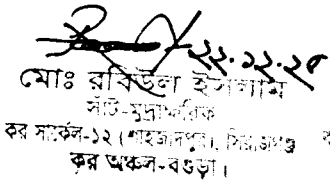 ২২.১২.২৫
মোঃ রবিউল ইসলাম
সাঁট-মুদ্রাক্ষরিক
কর সার্কেল-১২ (শাহজাদপুর), সিরাজগঞ্জ
কর অঞ্চল-বগুড়া।